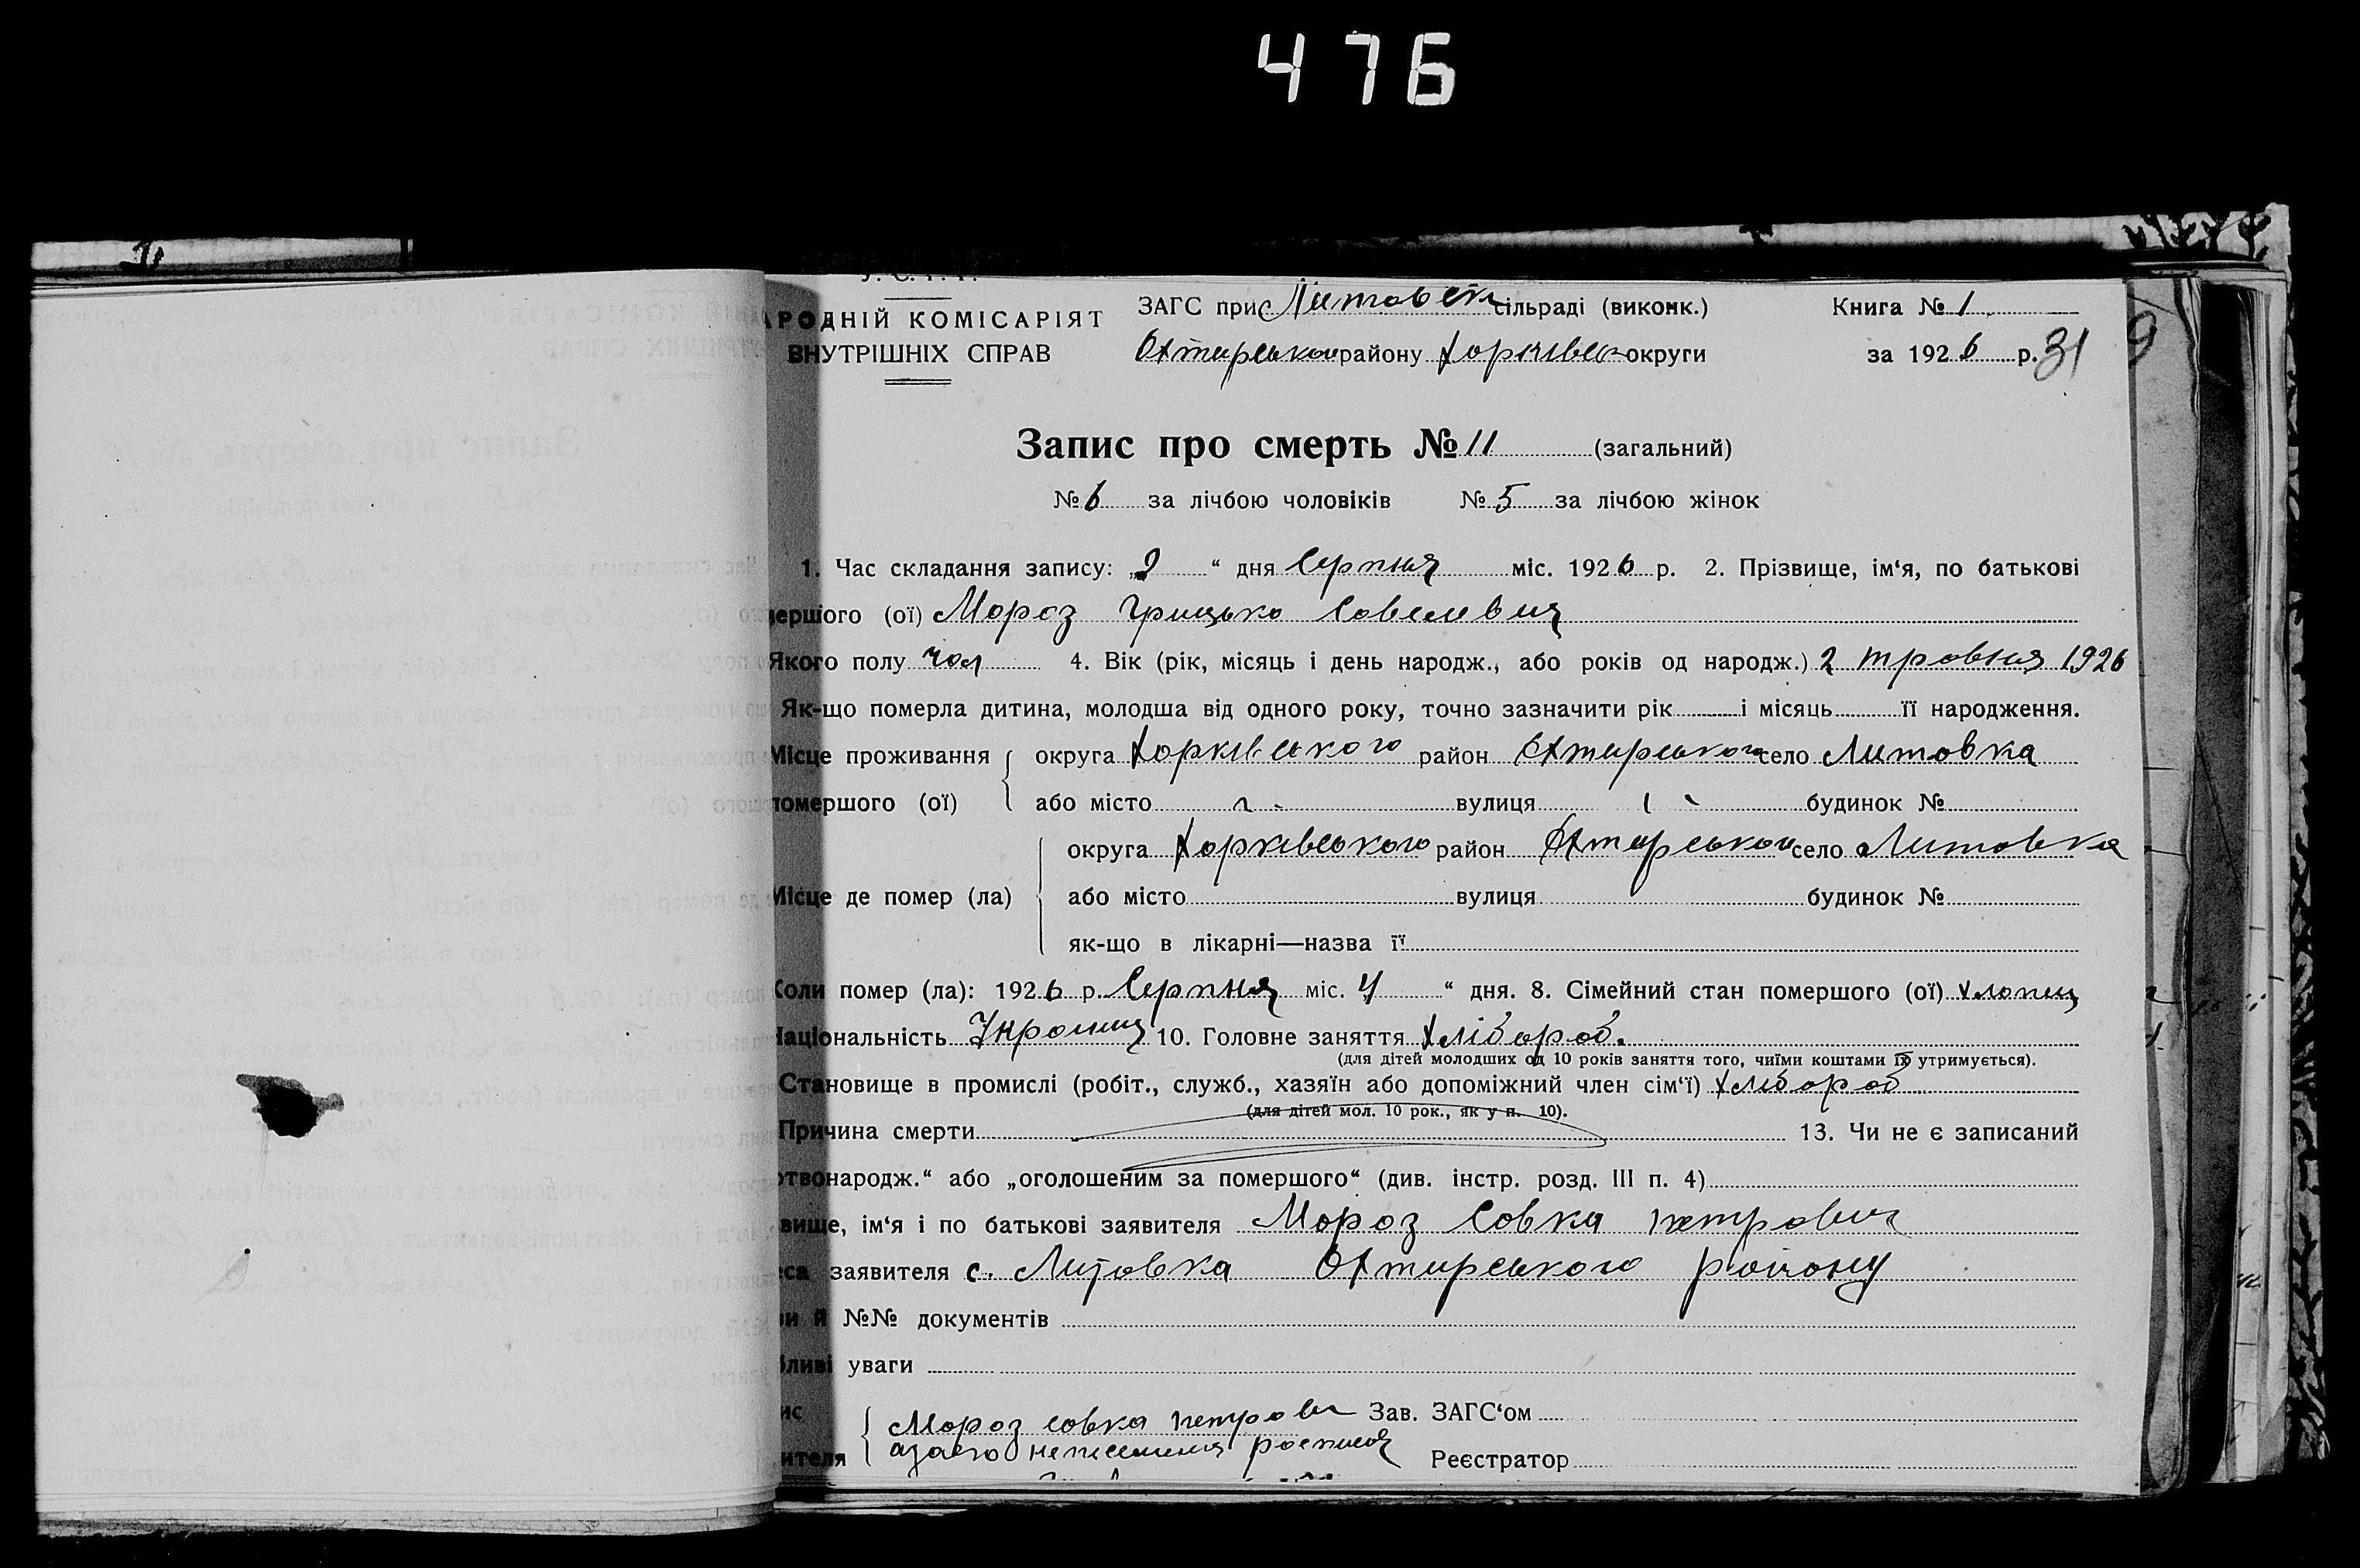 476
ЗАГС при Литовск сільраді (виконк.) Книга № 1
РОДНІЙ КОМІСАРІЯТ
ВНУТРІШНІХ СПРАВ Охтирськои району Харківсь округи за 1926 р. 31 9
Запис про смерть № 11 (загальний)
№ 6 за лічбою чоловіків № 5 за лічбою жінок
1. Час складання запису: „9 “ дня Серпня міс. 1926 р. 2. Прізвище, ім‘я, по батькові
мершого (ої) Мороз Грицько Савелевич
Якого полу чол 4. Вік (рік, місяць і день народж., або років од народж.) 2 травня 1926
Як-що померла дитина, молодша від одного року, точно зазначити рік і місяць її народження.
Місце проживання округа Харківського район Охтирського село Литовка
помершого (ої) або місто вулиця будинок №
округа Харківського район Охтирськои село Литовка
Місце де помер (ла) або місто вулиця будинок №
як-що в лікарні—назва її
Коли помер (ла): 1926 р. Серпня міс. 4 “ дня. 8. Сімейний стан помершого (ої) хлопец
Національність Украинец 10. Головне заняття хлібороб.
(для дітей молодших од 10 років заняття того, чиїми коштами їх утримується).
Становище в промислі (робіт., служб., хазяїн або допоміжний член сім‘ї) хлібороб
(для дітей мол. 10 рок., як у п. 10).
Причина смерти 13. Чи не є записаний
отвонародж.“ або „оголошеним за помершого“ (див. інстр. розд. III п. 4)
вище, ім‘я і по батькові заявителя Мороз Совка петрович
са заявителя с. Литовка Охтирського району
ви й №№ документів
бливі уваги
ис Мороз совка петрови Зав. ЗАГС‘ом
ителя Реєстратор